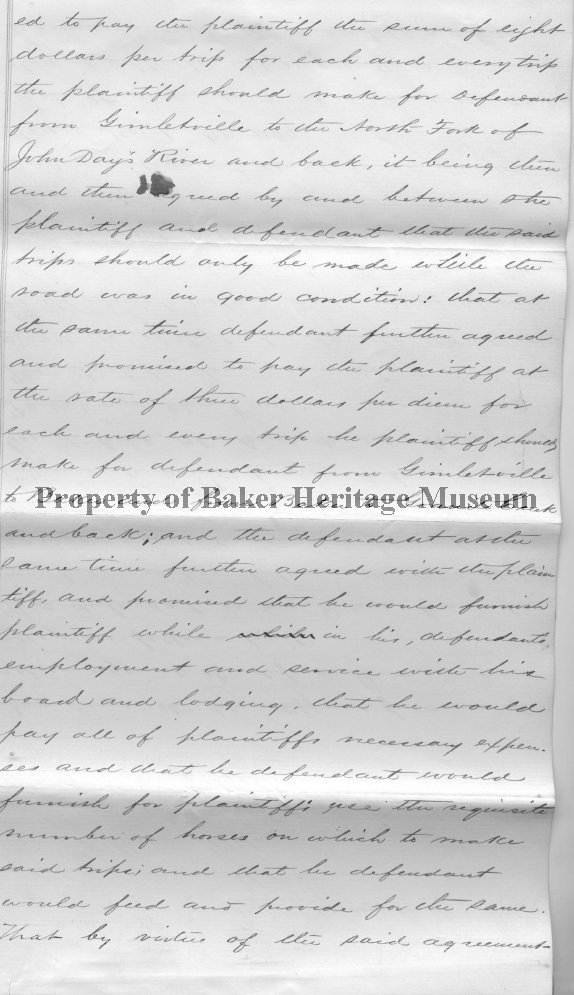 ed to pay the plaintiff the sum of eight
dollars per trip for each and every trip
the plaintiff should make for Defendant
from Gimletville to the North Fork of
John Day's River and back, it being then
and then agreed by and between the
plaintiff and defendant that the said
trips should only be made while the
road was in good condition: that at
the same time defendant further agreed
and promised to pay the plaintiff at
the rate of three dollars per diem for
each and every trip he plaintiff should
make for defendant from Gimletville
to
Property of Baker Heritage Museum
and back; and the defendant at the
same time further agreed with the plain
tiff, and promised that he would furnish
plaintiff while in his, defendants,
employment and service with his
board and lodging, that he would
pay all of plaintiffs necessary expen-
ses and that he defendant would
furnish for plaintiff's use the requisite
number of horses on which to make
said trips; and that he defendant
would feed and provide for the same.
That by virtue of the said agreement